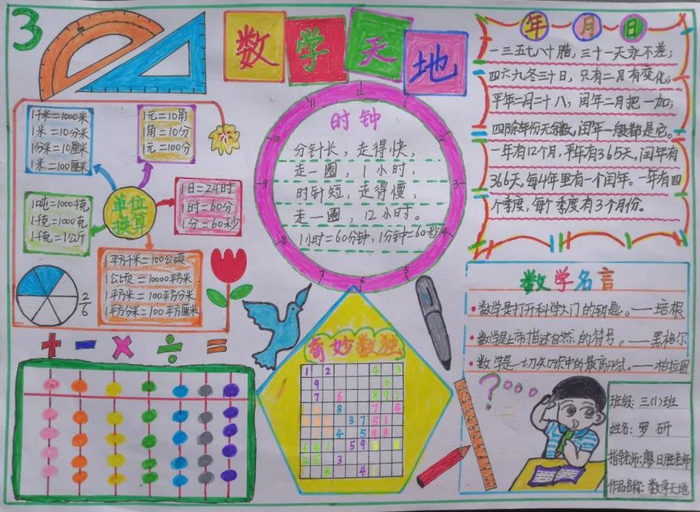 3
数学天地
1千米=1000米
1米=10分米
1分米=10厘米
1米=100厘米
1元=10角
1角=10分
1元=100分
1吨=1000千克
1千克=1000克
1千克=1公斤
单位
换算
1日=24时
1时=60分
1分=60秒
1平方千米=100公顷
1公顷=10000平方米
1平方米=100平方分米
1平方分米=100平方厘米
2/6
+ - × ÷ =
时钟
分针长，走得快，
走一圈，1小时，
时针短，走得慢，
走一圈，12小时。
1小时=60分钟，1分钟=60秒
奇妙数独
年月日
一三五七八十腊，三十一天永不差；
四六九冬三十日，只有二月有变化；
平年二月二十八，闰年二月把一加；
四除年份无余数，闰年一般都是它。
一年有12个月，平年有365天，闰年有
366天，每4年里有一个闰年。一年有四
个季度，每个季度有3个月份。
数学名言
数学是打开科学大门的钥匙。——培根
数学是上帝描述自然的符号。——黑格尔
数学是一切知识中的最高形式。——柏拉图
?
班级：三(1)班
姓名：罗研
指导老师：廖日胜老师
作品名称：数学天地